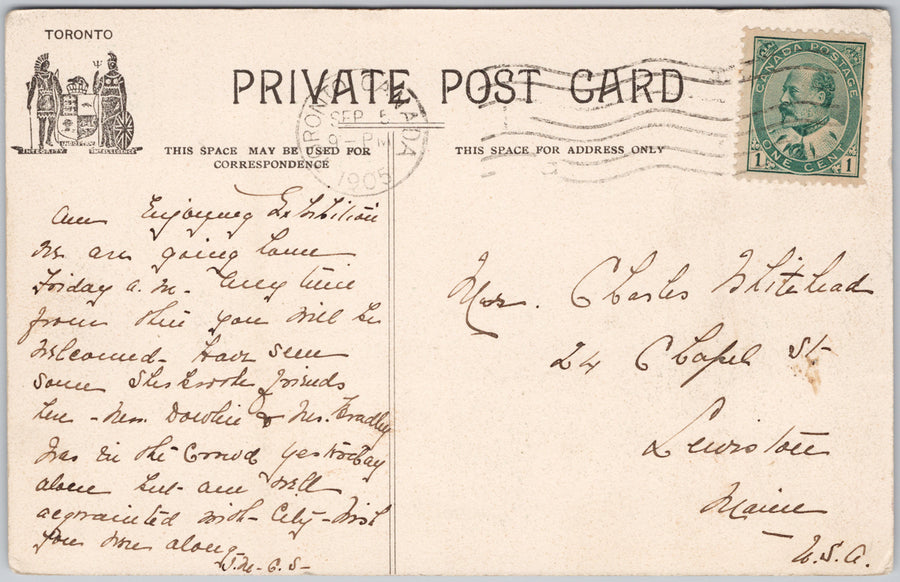 TORONTO
INTEGRITY INDUSTRY INTELLIGENCE
PRIVATE POST CARD
TORONTO CANADA
SEP 5
9 - PM
1905
CANADA POSTAGE
1 ONE CENT 1
THIS SPACE MAY BE USED FOR
CORRESPONDENCE
THIS SPACE FOR ADDRESS ONLY
Am Enjoying Exhibition
We are going home
Friday a.m. Any time
from then you will be
welcomed - Have seen
some Sherbrooke friends
here - Mrs. Dowlin & Mrs. Bradley
Was in the Crowd yesterday
alone but am well
acquainted with - City - Wish
you were along
J.M. - C. S -
Mrs. Charles Whitehead
24 Chapel St-
Lewiston
Maine
U.S.A.